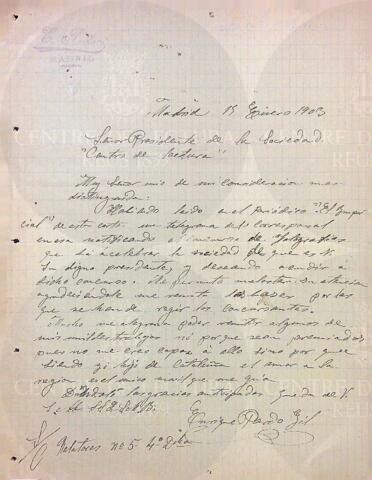 Madrid 15 Enero 1903
Señor Presidente de la Sociedad
"Centro de Lectura"
Muy Señor mio de mi consideracion mas
distinguida:
Habiendo leido en el Periódico "El Imparcial"
de esta corte un telegrama del corresponsal
en esa notificando el concurso de fotografias
que ha de celebrar la sociedad de que es V.
su digno presidente, y deseando acudir á
dicho concurso. Me permito molestar su atencion
me remita las bases por las
que se han de regir los concursantes.
Mucho me alegraria poder remitir algunos de
mis modestos trabajos no por que sean premiados
pues no me creo capaz á ello sino por que
siendo yo hijo de Cataluña el amor á la
region es el unico movil que me guia.
Dandole las gracias anticipadas queda de V.
Enrique Pardo Gil
Relatores nº 5 4º Dcha
CENTRE DE LECTURA